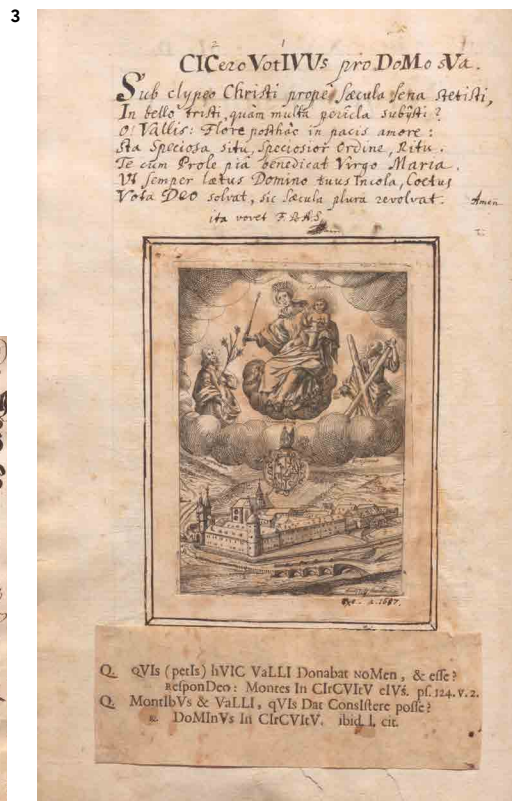 3
2 1
CICero VotIVUs pro DoMo sVa.
Sub clypeo Christi propè sæcula sena stetisti,
In bello tristi, quàm multa pericla subÿsti?
O! Vallis: Flore posthâc in pacis amore:
Sta Speciosa situ, speciosior Ordine, Ritu.
Te cum Prole piâ benedicat Virgo Maria.
Ut semper lætus Domino tuus Incola, Coetus
Vota DEO solvat, sic sæcula plura revolvat. Amen
ita vovet F.
a. 1687.
Q. QVIs (petIs) hVIC VaLLI Donabat NoMen, & esse?
ResponDeo: Montes In CIrCVItV eIVs. ps. 124. v. 2.
Q. MontIbVs & VaLLI, qVIs Dat ConsIstere posse?
R. DoMInVs In CIrCVItV. ibid. l. cit.